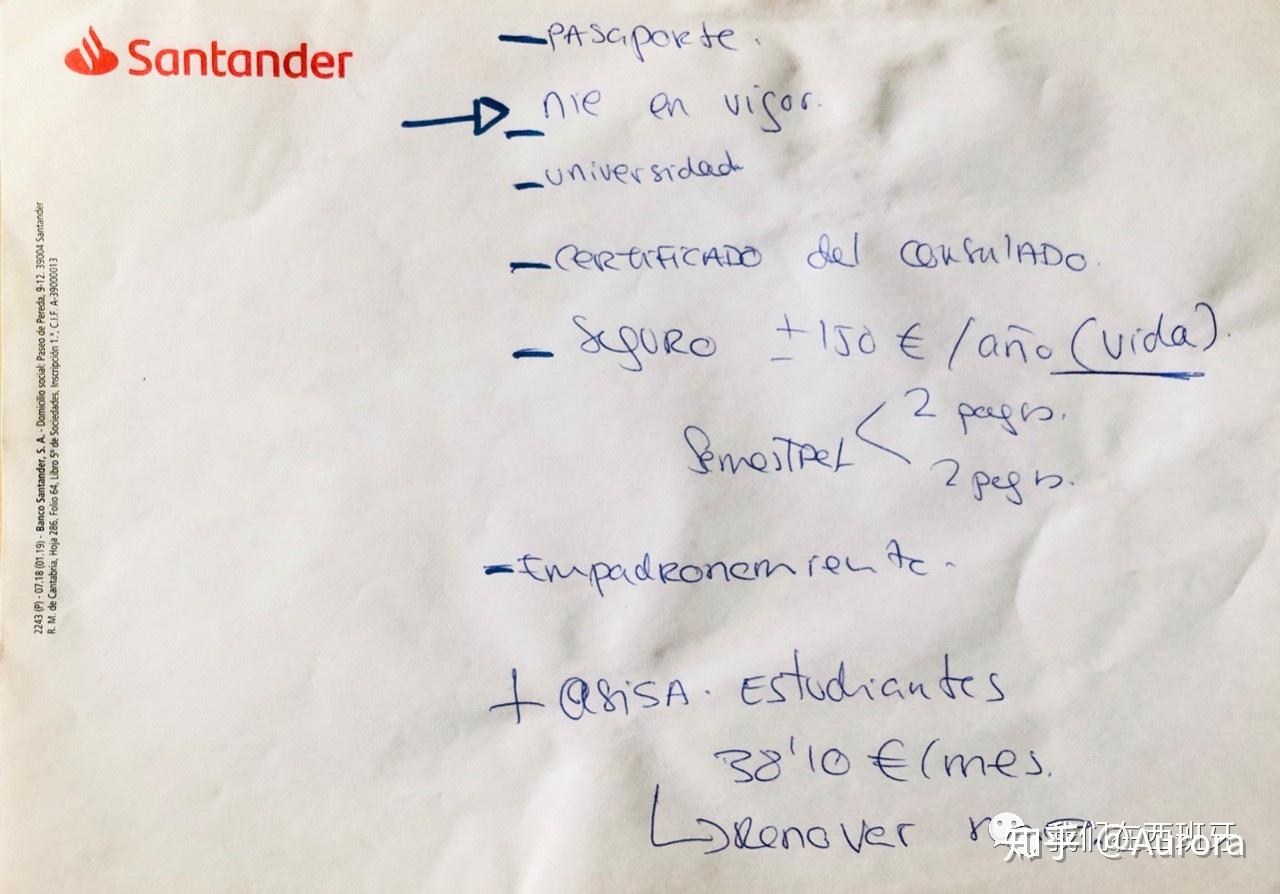 Santander
- PASaporte.
- nie en vigor.
- universidad
- CERTIFICADO del CONSULADO.
- SEGURO ± 150 € / año (vida).
2 pagos.
Semestral
2 pagos.
- Empadronamiento.
+ @SiSA. Estudiantes
38'10 €/mes.
Renovar
知乎 @Aurora
我们在西班牙
2243 (P) - 07.18 (01.19) - Banco Santander, S. A. - Domicilio social: Paseo de Pereda, 9-12. 39004 Santander
R. M. de Cantabria, Hoja 286, Folio 64, Libro 5º de Sociedades, Inscripción 1.ª, C.I.F. A-39000013